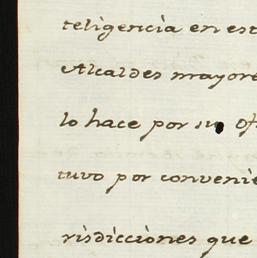 teligencia en est
Alcaldes mayore
lo hace por su Of
tuvo por convenie
risdicciones que